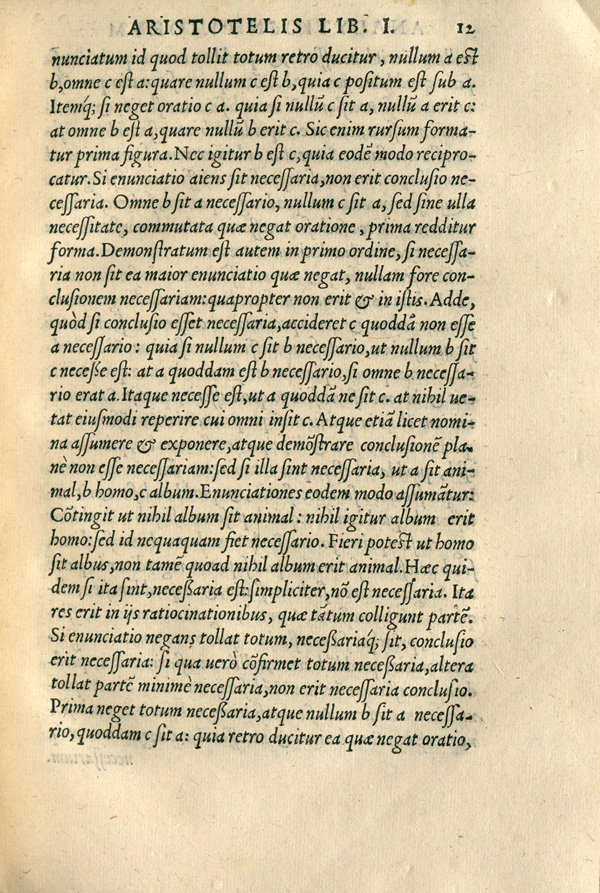 ARISTOTELIS LIB. I. 12
nunciatum id quod tollit totum retro ducitur, nullum a est
b, omne c est a: quare nullum c est b, quia c positum est sub a.
Itemq́; si neget oratio c a. quia si nullū c sit a, nullū a erit c:
at omne b est a, quare nullū b erit c. Sic enim rursum forma-
tur prima figura. Nec igitur b est c, quia eodē modo recipro-
catur. Si enunciatio aiens sit necessaria, non erit conclusio ne-
cessaria. Omne b sit a necessario, nullum c sit a, sed sine ulla
necessitate, commutata quæ negat oratione, prima redditur
forma. Demonstratum est autem in primo ordine, si necessa-
ria non sit ea maior enunciatio quæ negat, nullam fore con-
clusionem necessariam: quapropter non erit & in istis. Adde,
quòd si conclusio esset necessaria, accideret c quoddā non esse
a necessario: quia si nullum c sit b necessario, ut nullum b sit
c neceße est: at a quoddam est b necessario, si omne b necessa-
rio erat a. Itaque necesse est, ut a quoddā ne sit c. at nihil ue-
tat eiusmodi reperire cui omni insit c. Atque etiā licet nomi-
na assumere & exponere, atque demōstrare conclusionē pla-
nè non esse necessariam: sed si illa sint necessaria, ut a sit ani-
mal, b homo, c album. Enunciationes eodem modo assumātur:
Cōtingit ut nihil album sit animal: nihil igitur album erit
homo: sed id nequaquam fiet necessario. Fieri potest ut homo
sit albus, non tamē quoad nihil album erit animal. Hæc qui-
dem si ita sint, neceßaria est: simpliciter, nō est necessaria. Ita
res erit in ijs ratiocinationibus, quæ tātum colligunt partē.
Si enunciatio negans tollat totum, neceßariaq́; sit, conclusio
erit necessaria: si qua uerò cōfirmet totum neceßaria, altera
tollat partē minimè necessaria, non erit necessaria conclusio.
Prima neget totum neceßaria, atque nullum b sit a necessa-
rio, quoddam c sit a: quia retro ducitur ea quæ negat oratio,
necessarium.